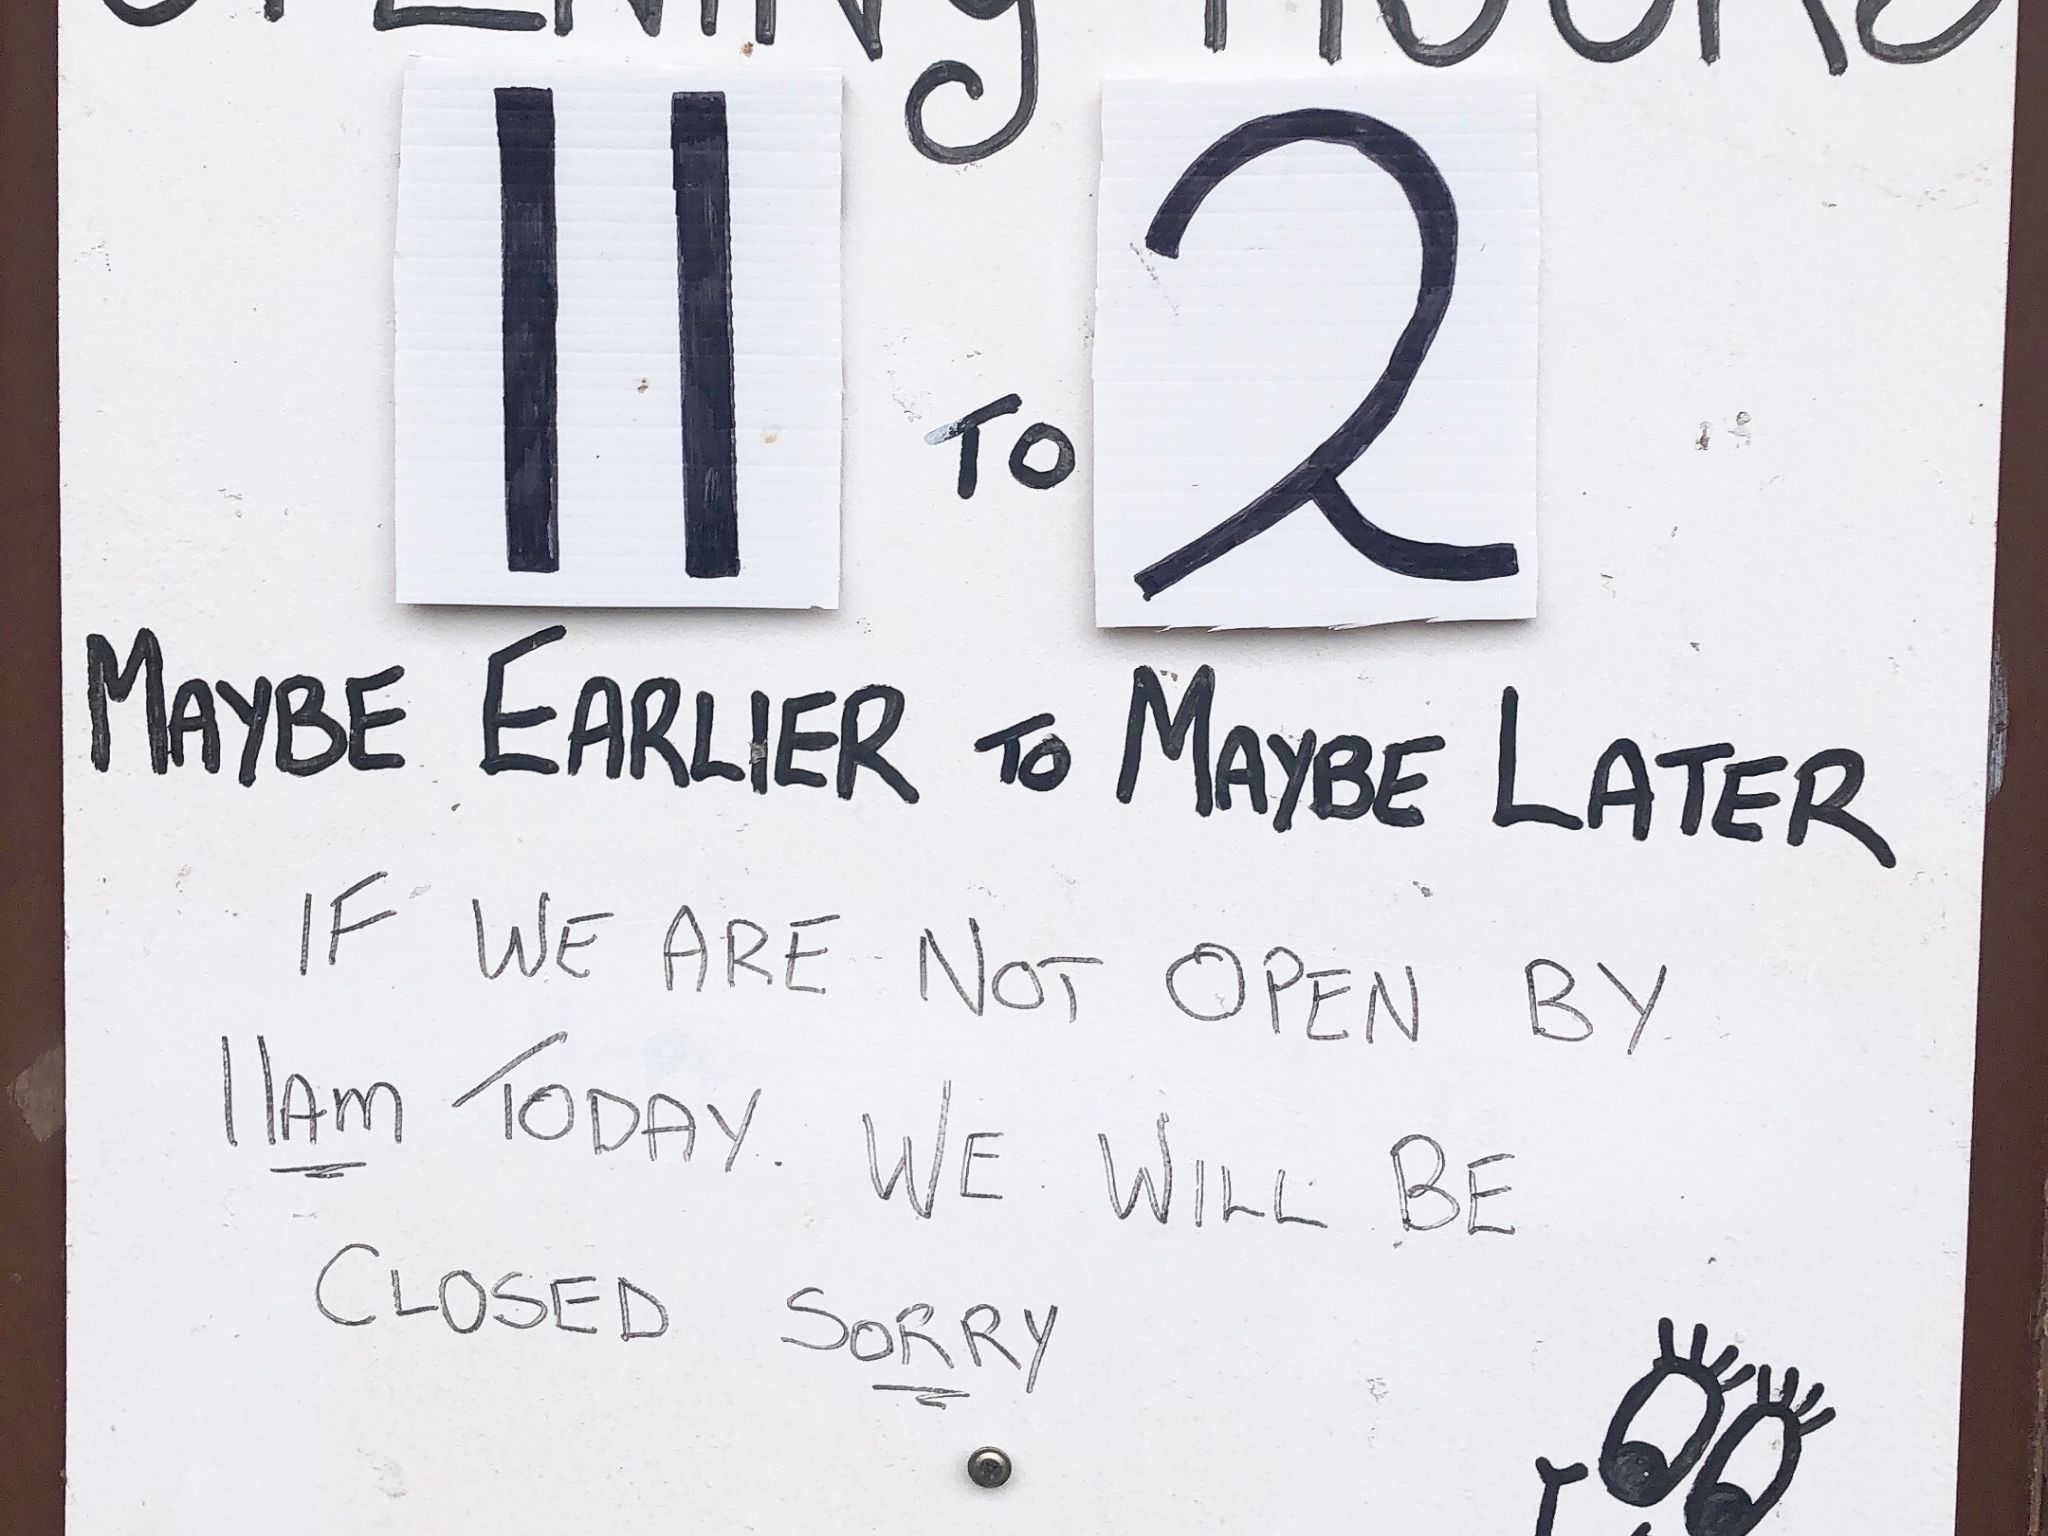 OPENING HOURS
11 TO 2
MAYBE EARLIER TO MAYBE LATER
IF WE ARE NOT OPEN BY
11AM TODAY. WE WILL BE
CLOSED SORRY